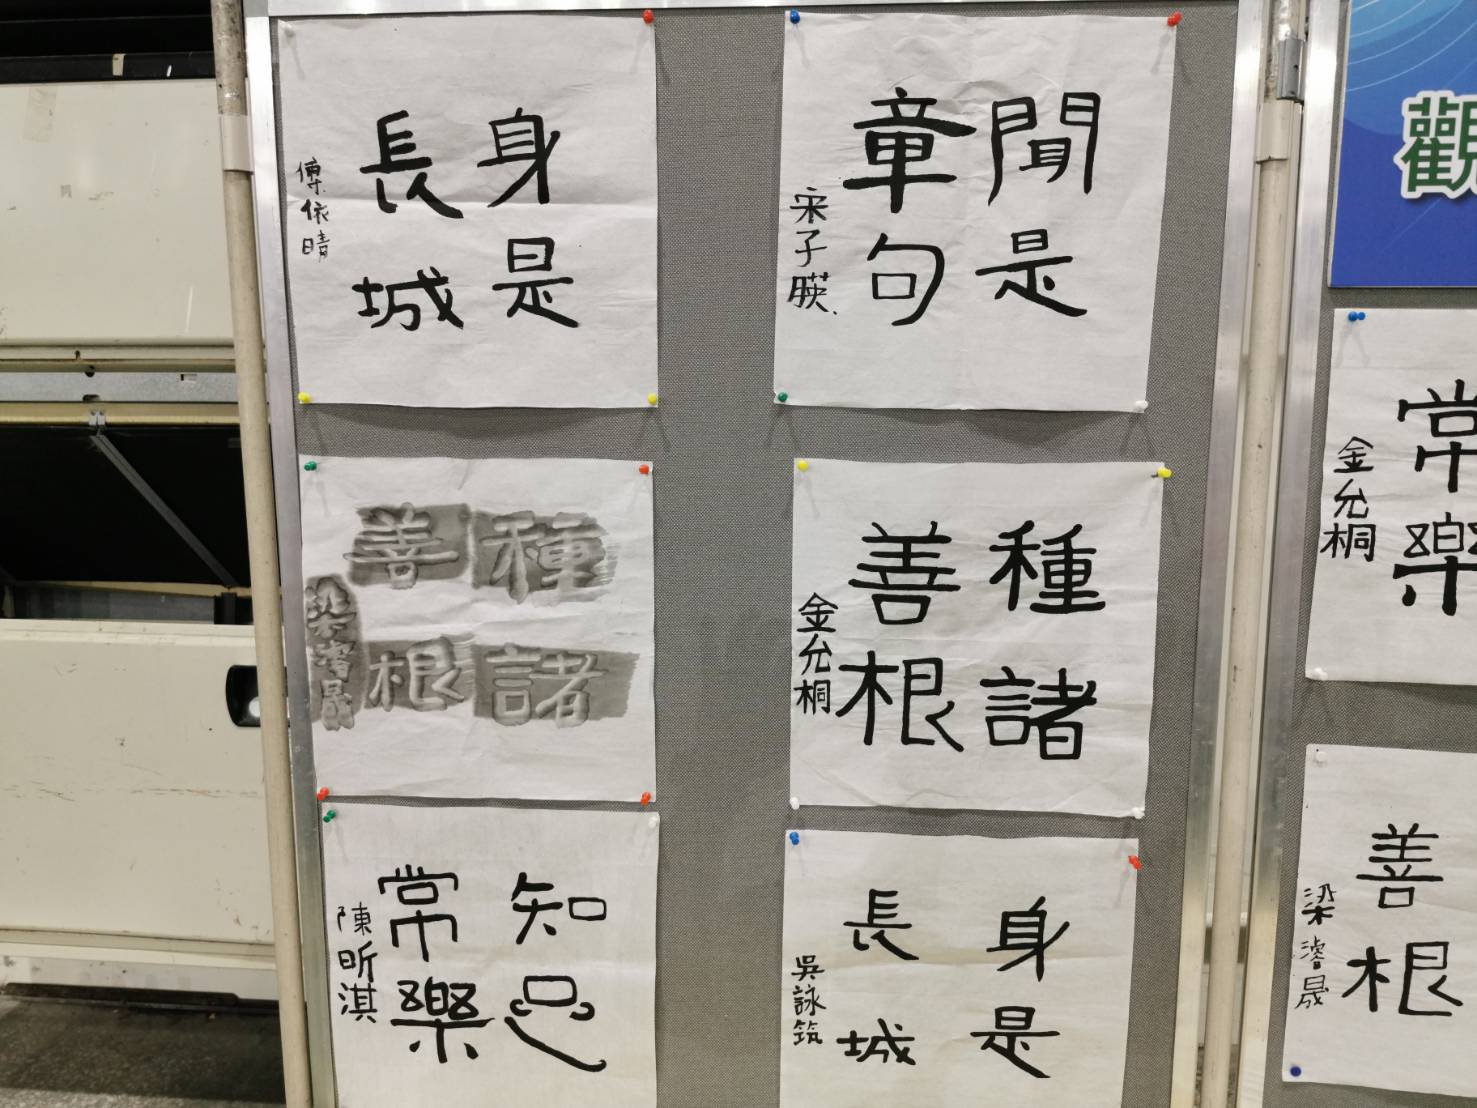 身是
長城
傅依晴
聞是
章句
宋子朠
種諸
善根
梁濬晟
種諸
善根
金允桐
知足
常樂
陳昕淇
身是
長城
吳詠筑
觀
常樂
金允桐
善根
梁濬晟